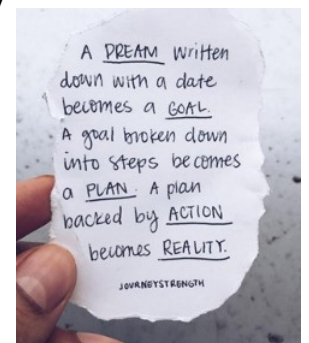 A DREAM written
down with a date
becomes a GOAL.
A goal broken down
into steps becomes
a PLAN. A plan
backed by ACTION
becomes REALITY.
JOURNEYSTRENGTH